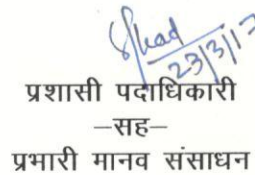 23/3/17
प्रशासी पदाधिकारी
–सह–
प्रभारी मानव संसाधन